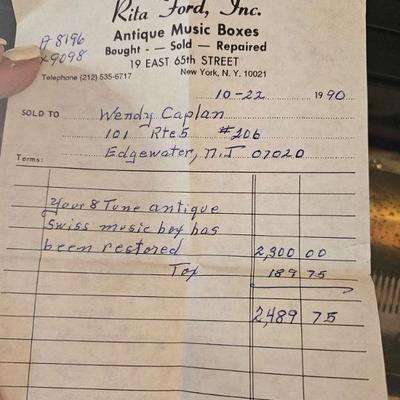 Rita Ford, Inc.
Antique Music Boxes
Bought - - Sold - Repaired
19 EAST 65th STREET
Telephone (212) 535-6717 New York, N. Y. 10021
A 8196
x9098
10-22 1990
SOLD TO Wendy Caplan
101 Rte 5 #206
Edgewater, N.J 07020
Terms:
Your 8 Tune antique
Swiss music box has
been restored 2,300 00
Tax 189 75
2,489 75